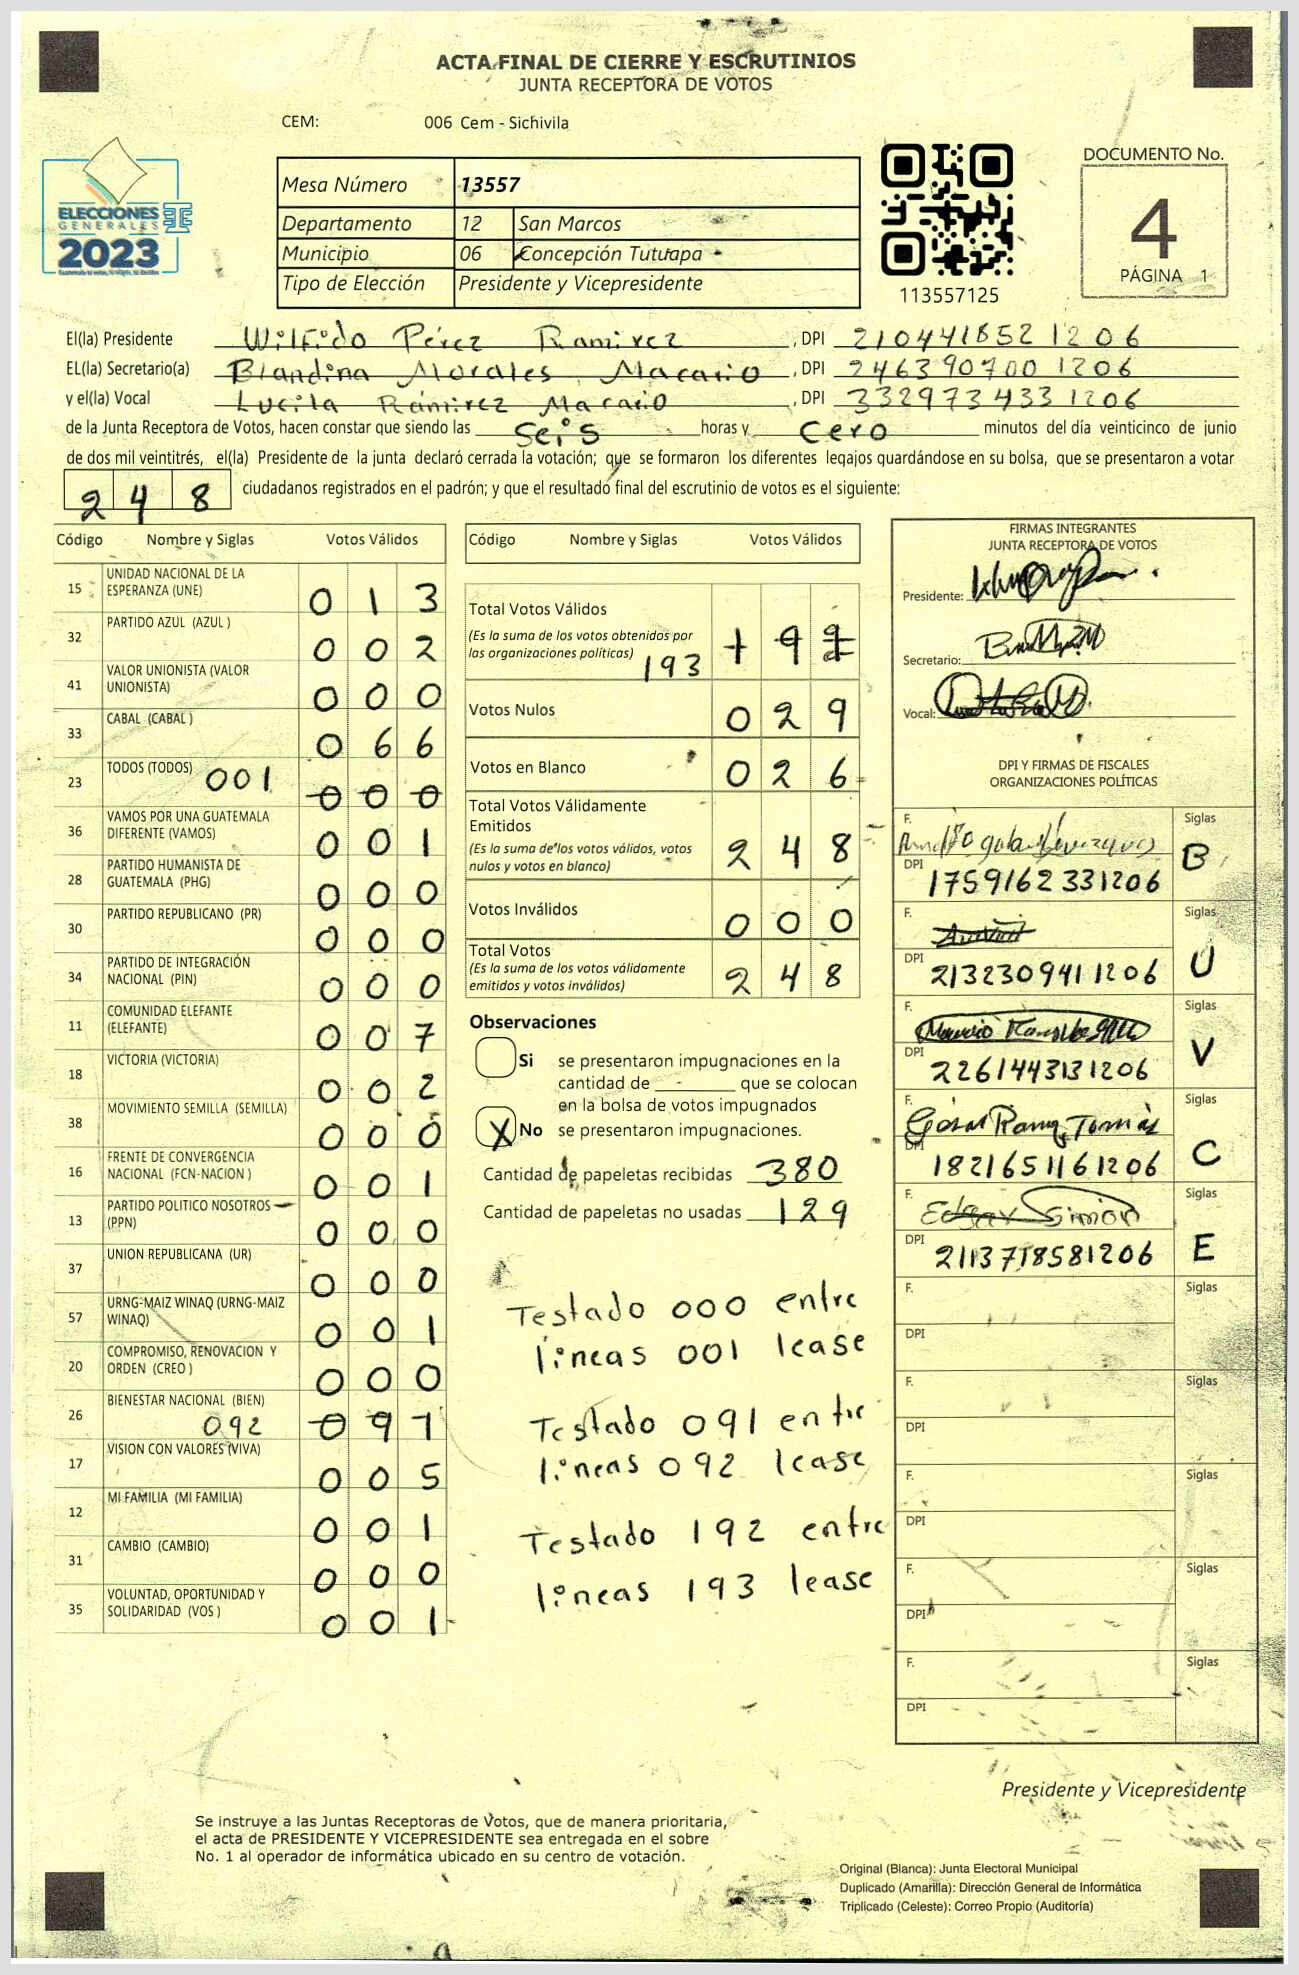 ACTA FINAL DE CIERRE Y ESCRUTINIOS
JUNTA RECEPTORA DE VOTOS
CEM: 006 Cem - Sichivila
ELECCIONES
GENERALES
2023
Mesa Número 13557
Departamento 12 San Marcos
Municipio 06 Concepción Tutuapa
Tipo de Elección Presidente y Vicepresidente
113557125
DOCUMENTO No.
4
PÁGINA 1
El(la) Presidente Wilfido Pérez Ramirez, DPI 210441852 1206
EL(la) Secretario(a) Blandina Morales Macario, DPI 246390700 1206
y el(la) Vocal Lucila Ramirez Macario, DPI 332973433 1206
de la Junta Receptora de Votos, hacen constar que siendo las seis horas y cero minutos del día veinticinco de junio
de dos mil veintitrés, el(la) Presidente de la junta declaró cerrada la votación; que se formaron los diferentes legajos quardándose en su bolsa, que se presentaron a votar
248 ciudadanos registrados en el padrón; y que el resultado final del escrutinio de votos es el siguiente:
Código Nombre y Siglas Votos Válidos
15 UNIDAD NACIONAL DE LA ESPERANZA (UNE) 0 1 3
32 PARTIDO AZUL (AZUL ) 0 0 2
41 VALOR UNIONISTA (VALOR UNIONISTA) 0 0 0
33 CABAL (CABAL ) 0 6 6
23 TODOS (TODOS) 001 0 0 0
36 VAMOS POR UNA GUATEMALA DIFERENTE (VAMOS) 0 0 1
28 PARTIDO HUMANISTA DE GUATEMALA (PHG) 0 0 0
30 PARTIDO REPUBLICANO (PR) 0 0 0
34 PARTIDO DE INTEGRACIÓN NACIONAL (PIN) 0 0 0
11 COMUNIDAD ELEFANTE (ELEFANTE) 0 0 7
18 VICTORIA (VICTORIA) 0 0 2
38 MOVIMIENTO SEMILLA (SEMILLA) 0 0 0
16 FRENTE DE CONVERGENCIA NACIONAL (FCN-NACION ) 0 0 1
13 PARTIDO POLITICO NOSOTROS (PPN) 0 0 0
37 UNION REPUBLICANA (UR) 0 0 0
57 URNG-MAIZ WINAQ (URNG-MAIZ WINAQ) 0 0 1
20 COMPROMISO, RENOVACION Y ORDEN (CREO ) 0 0 0
26 BIENESTAR NACIONAL (BIEN) 092 0 9 1
17 VISION CON VALORES (VIVA) 0 0 5
12 MI FAMILIA (MI FAMILIA) 0 0 1
31 CAMBIO (CAMBIO) 0 0 0
35 VOLUNTAD, OPORTUNIDAD Y SOLIDARIDAD (VOS ) 0 0 1
Código Nombre y Siglas Votos Válidos
Total Votos Válidos
(Es la suma de los votos obtenidos por
las organizaciones políticas) 193 1 9 2
Votos Nulos 0 2 9
Votos en Blanco 0 2 6
Total Votos Válidamente
Emitidos
(Es la suma de los votos válidos, votos
nulos y votos en blanco) 2 4 8
Votos Inválidos 0 0 0
Total Votos
(Es la suma de los votos válidamente
emitidos y votos inválidos) 2 4 8
Observaciones
Si se presentaron impugnaciones en la
cantidad de - que se colocan
en la bolsa de votos impugnados
X No se presentaron impugnaciones.
Cantidad de papeletas recibidas 380
Cantidad de papeletas no usadas 129
Testado 000 entre
lineas 001 lease
Testado 091 entre
lineas 092 lease
Testado 192 entre
lineas 193 lease
FIRMAS INTEGRANTES
JUNTA RECEPTORA DE VOTOS
Presidente:
Secretario:
Vocal:
DPI Y FIRMAS DE FISCALES
ORGANIZACIONES POLÍTICAS
F. Siglas
DPI 1759162331206 B
F. Siglas
DPI 2132309411206 U
F. Siglas
DPI 2261443131206 V
F. Siglas
DPI 1821651161206 C
F. Edgar Simón Siglas
DPI 2113718581206 E
F. Siglas
DPI
F. Siglas
DPI
F. Siglas
DPI
F. Siglas
DPI
F. Siglas
DPI
Presidente y Vicepresidente
Se instruye a las Juntas Receptoras de Votos, que de manera prioritaria,
el acta de PRESIDENTE Y VICEPRESIDENTE sea entregada en el sobre
No. 1 al operador de informática ubicado en su centro de votación.
Original (Blanca): Junta Electoral Municipal
Duplicado (Amarilla): Dirección General de Informática
Triplicado (Celeste): Correo Propio (Auditoría)